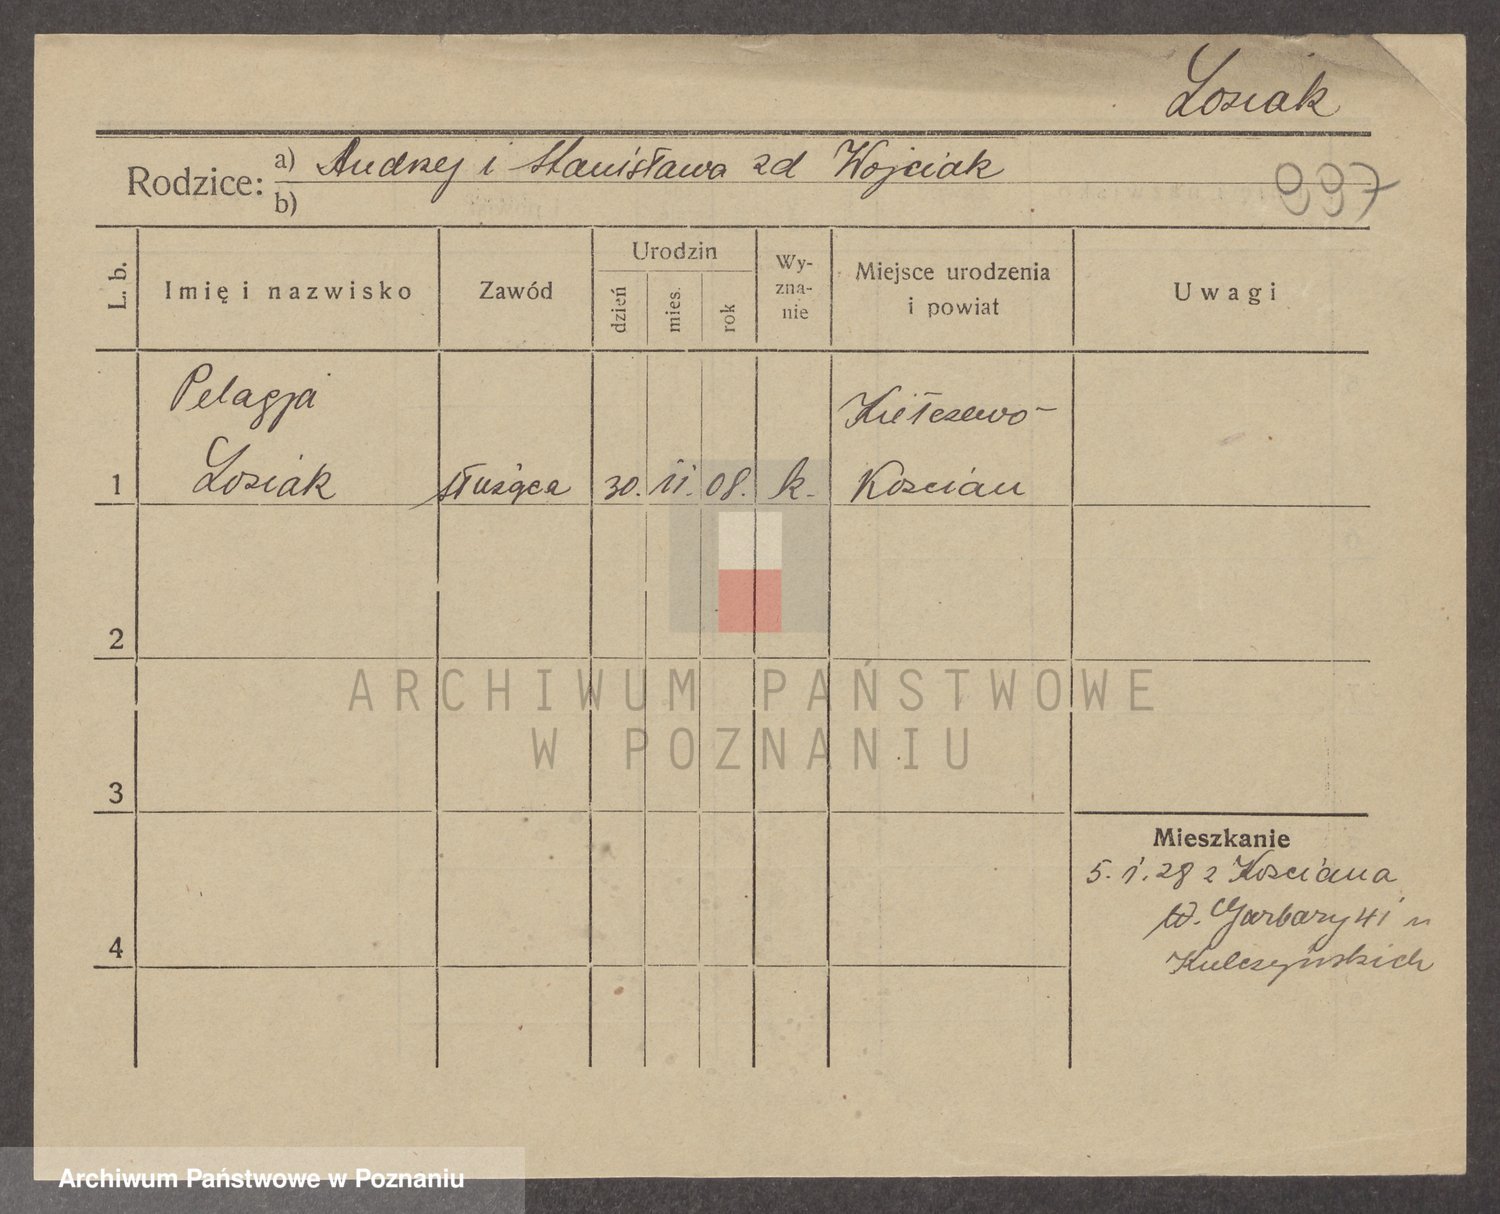 Łosiak
Rodzice: a) Andrzej i Stanisława zd Wojciak
b)
997
L. b.
Imię i nazwisko
Zawód
Urodzin
dzień
mies.
rok
Wy-
zna-
nie
Miejsce urodzenia
i powiat
Uwagi
Pelagja
Kiełczewo-
1 Łosiak służąca 30. 11. 08. k. Kościan
2
ARCHIWUM PAŃSTWOWE
W POZNANIU
3
Mieszkanie
5. 1. 28 z Kościana
W. Garbary 41 u
4
Kulczyńskich
Archiwum Państwowe w Poznaniu